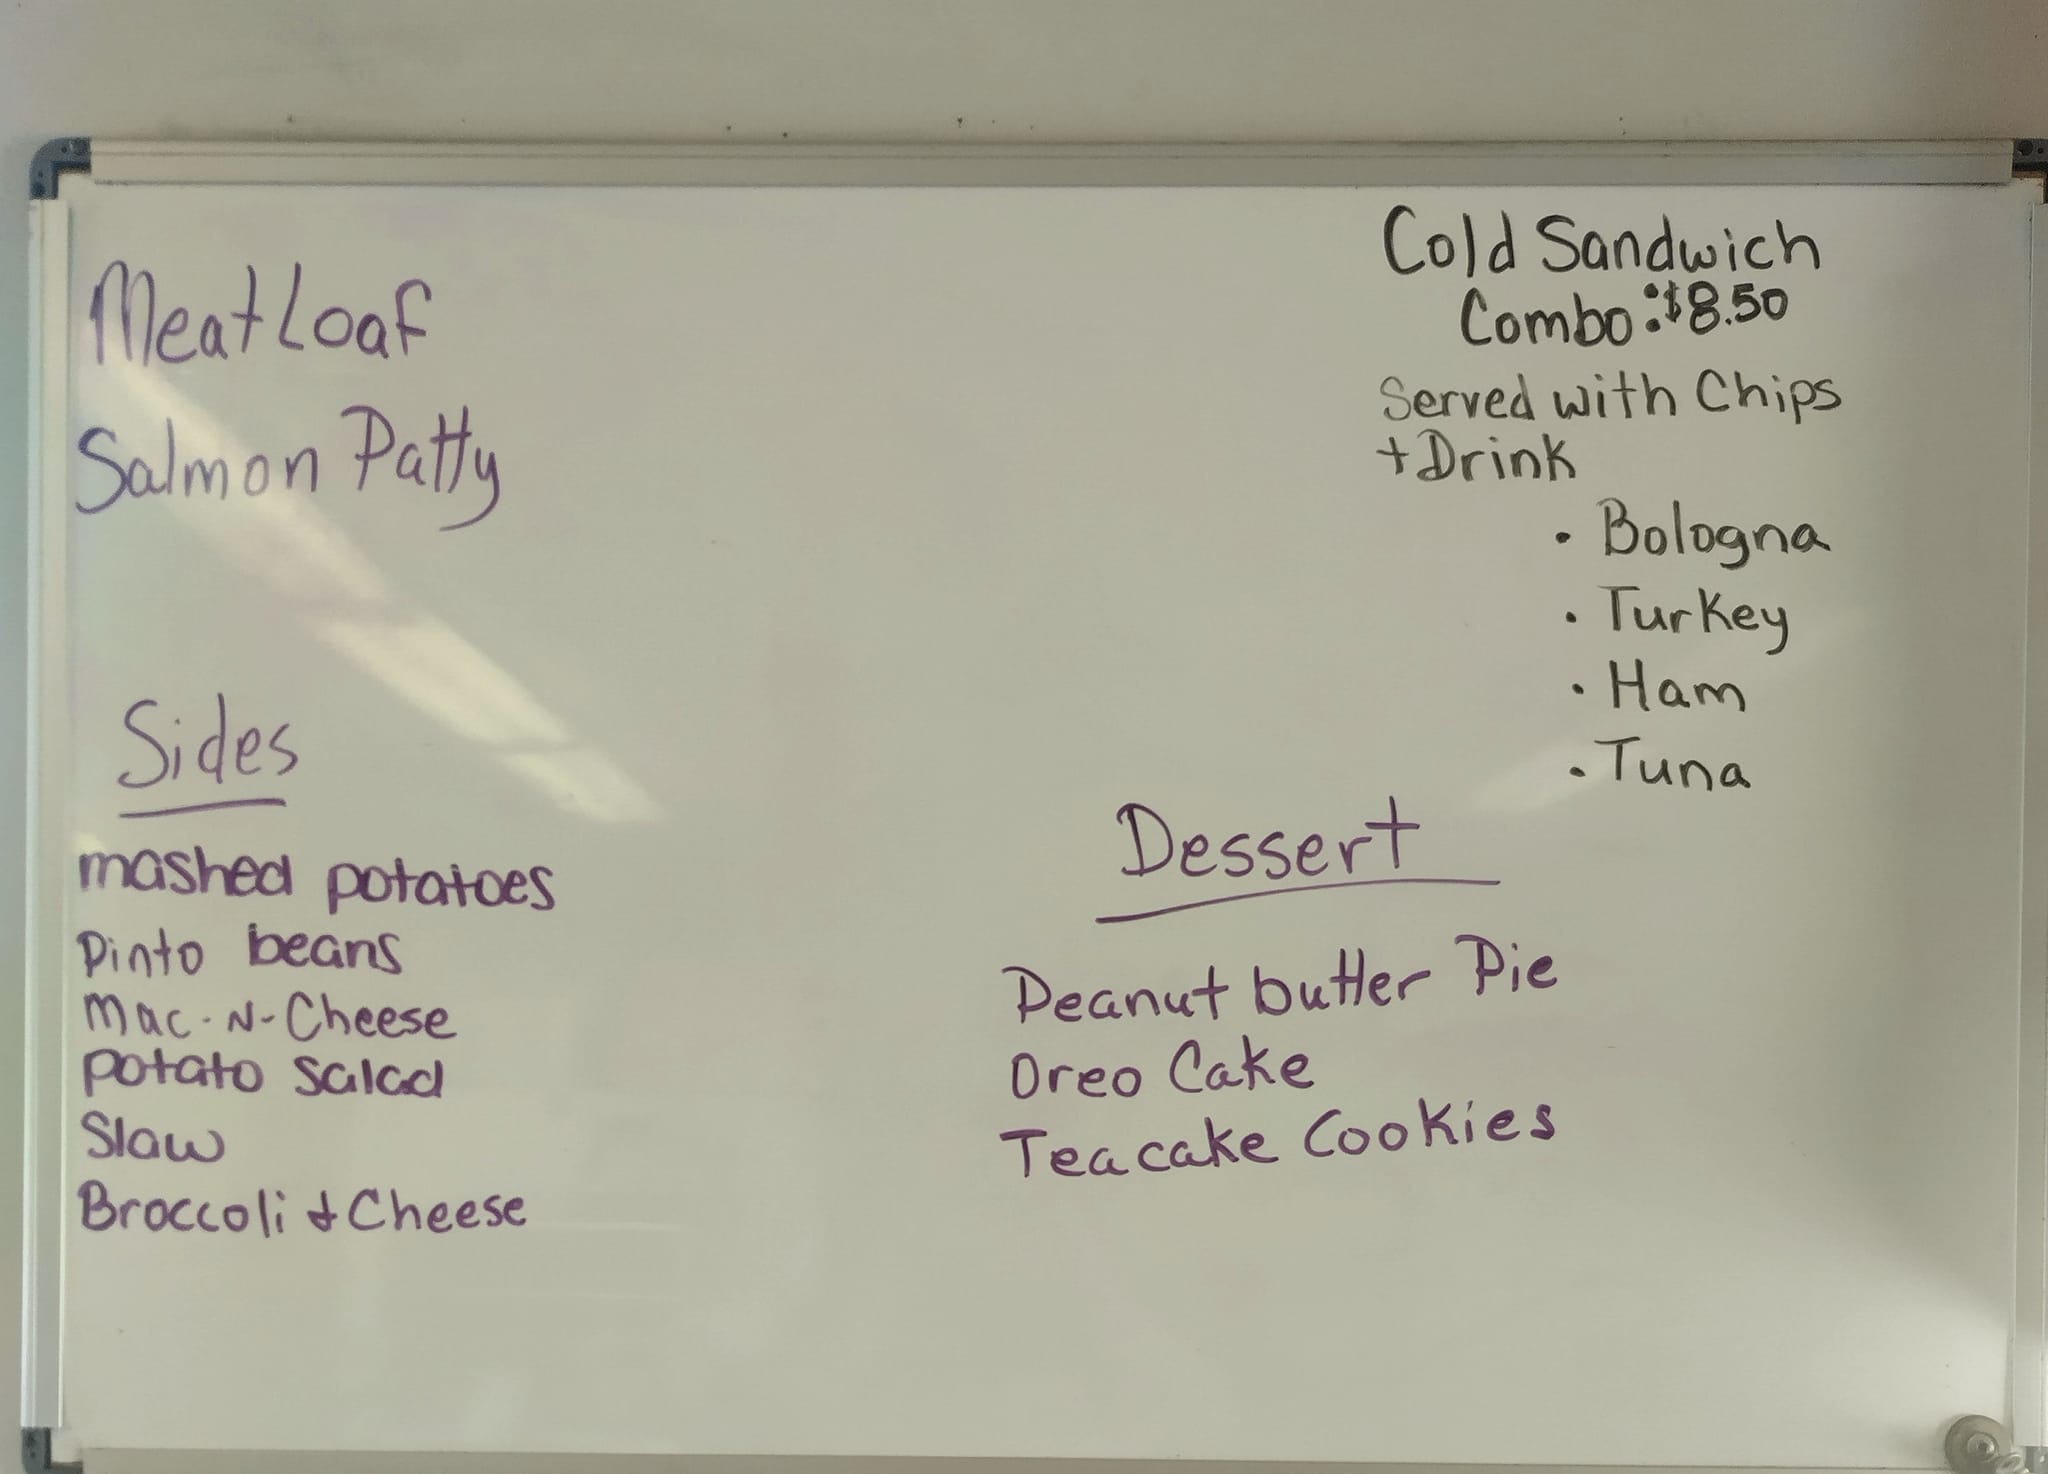 Meat Loaf
Salmon Patty
Sides
mashed potatoes
Pinto beans
Mac-N-Cheese
potato salad
Slaw
Broccoli + Cheese
Cold Sandwich
Combo: $8.50
Served with Chips
+ Drink
• Bologna
• Turkey
• Ham
• Tuna
Dessert
Peanut butter Pie
Oreo Cake
Teacake Cookies